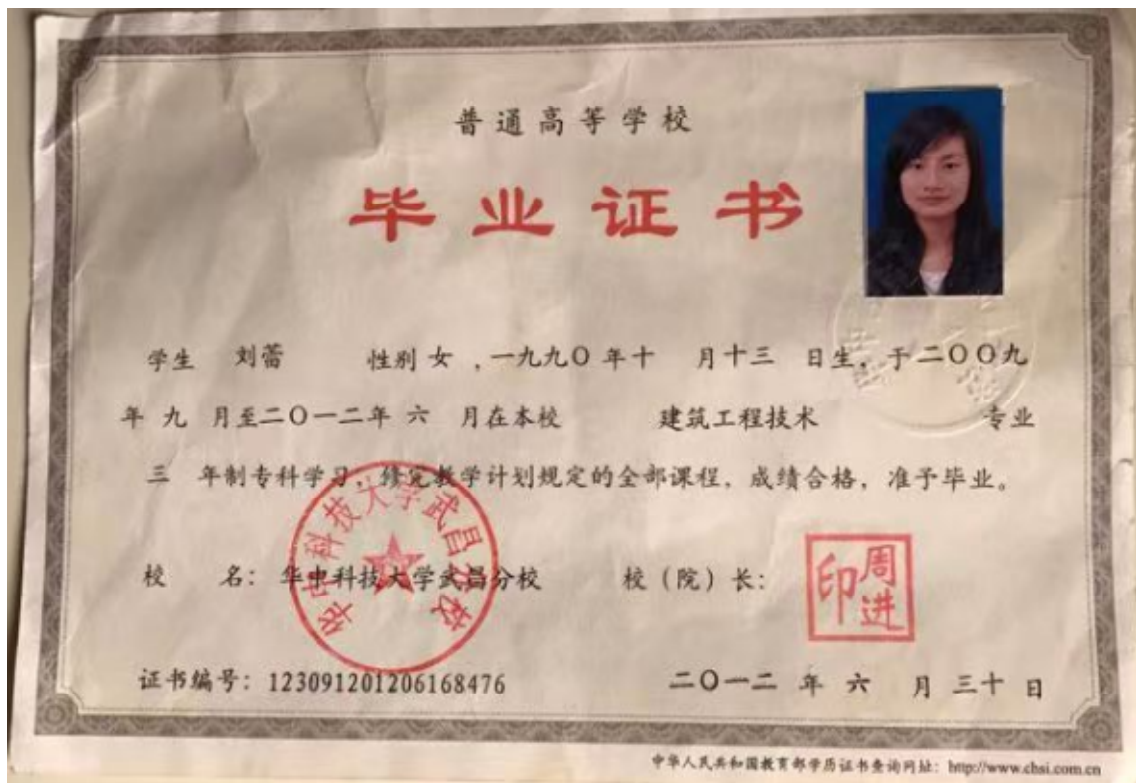 普通高等学校
毕业证书
学生 刘蕾 性别 女 ，一九九〇 年 十 月 十三 日生，于二〇〇九
年 九 月至二〇一二年 六 月在本校 建筑工程技术 专业
三 年制专科学习，修完教学计划规定的全部课程，成绩合格，准予毕业。
校 名：华中科技大学武昌分校 校（院）长：
华中科技大学武昌分校
周进印
证书编号：123091201206168476 二〇一二 年 六 月 三十 日
中华人民共和国教育部学历证书查询网址：http://www.chsi.com.cn